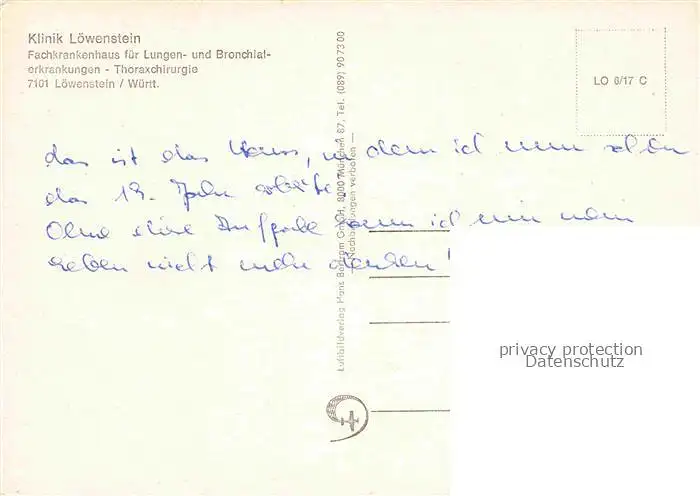 Klinik Löwenstein
Fachkrankenhaus für Lungen- und Bronchial-
erkrankungen - Thoraxchirurgie
7101 Löwenstein / Württ.
LO 6/17 C
das ist das Haus, in dem ich nun schon
das 13. Jahr arbeite.
Ohne diese Aufgabe kann ich mir mein
Leben nicht mehr denken!
Luftbildverlag Hans Bertram GmbH, 8000 München 87, Tel. (089) 90 73 00
— Nachbildungen verboten —
privacy protection
Datenschutz